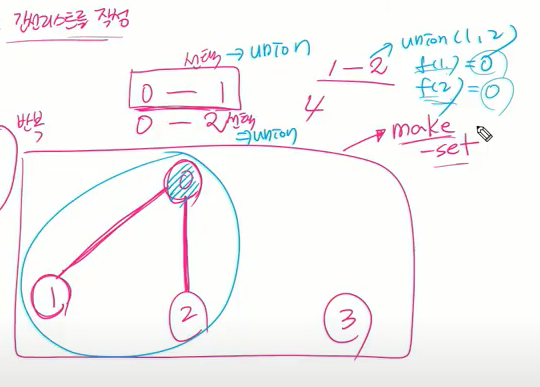 간선리스트를 작성
선택 → union
0 — 1
0 — 2 선택
⇒ union
1 — 2
4
union(1, 2)
f(1) = 0
f(2) = 0
반복
make
-set
0
1
2
3